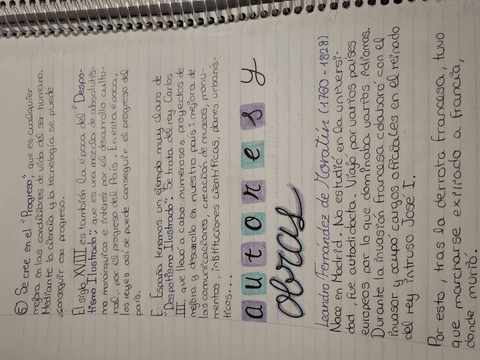 5) Se cree en el "Progreso", que es cualquier
mejora en las condiciones de vida del ser humano.
Mediante la ciencia y la tecnología se puede
conseguir ese progreso.
El siglo XVIII es también la época del "Despo-
tismo Ilustrado": que es una mezcla de absolutis-
mo monárquico e interés por el desarrollo cultu-
ral, por el progreso del País. En esta época,
los reyes así se puede conseguir el progreso del
país.
En España tenemos un ejemplo muy claro de
"Despotismo Ilustrado". Se trata del rey Carlos
III, que llevó a cabo numerosos proyectos de
mejora y desarrollo en nuestro país: mejora de
las comunicaciones, creación de museos, monu-
mentos, instituciones científicas, planes urbanís-
ticos...
autores y
obras
Leandro Fernández de Moratín (1760-1828)
Nace en Madrid. No estudió en la universi-
dad, fue autodidacta. Viajó por varios países
europeos por lo que dominaba varios idiomas.
Durante la invasión francesa colaboró con el
invasor y ocupó cargos oficiales en el reinado
del rey intruso José I.
Por esto, tras la derrota francesa, tuvo
que marcharse exiliado a Francia,
donde murió.